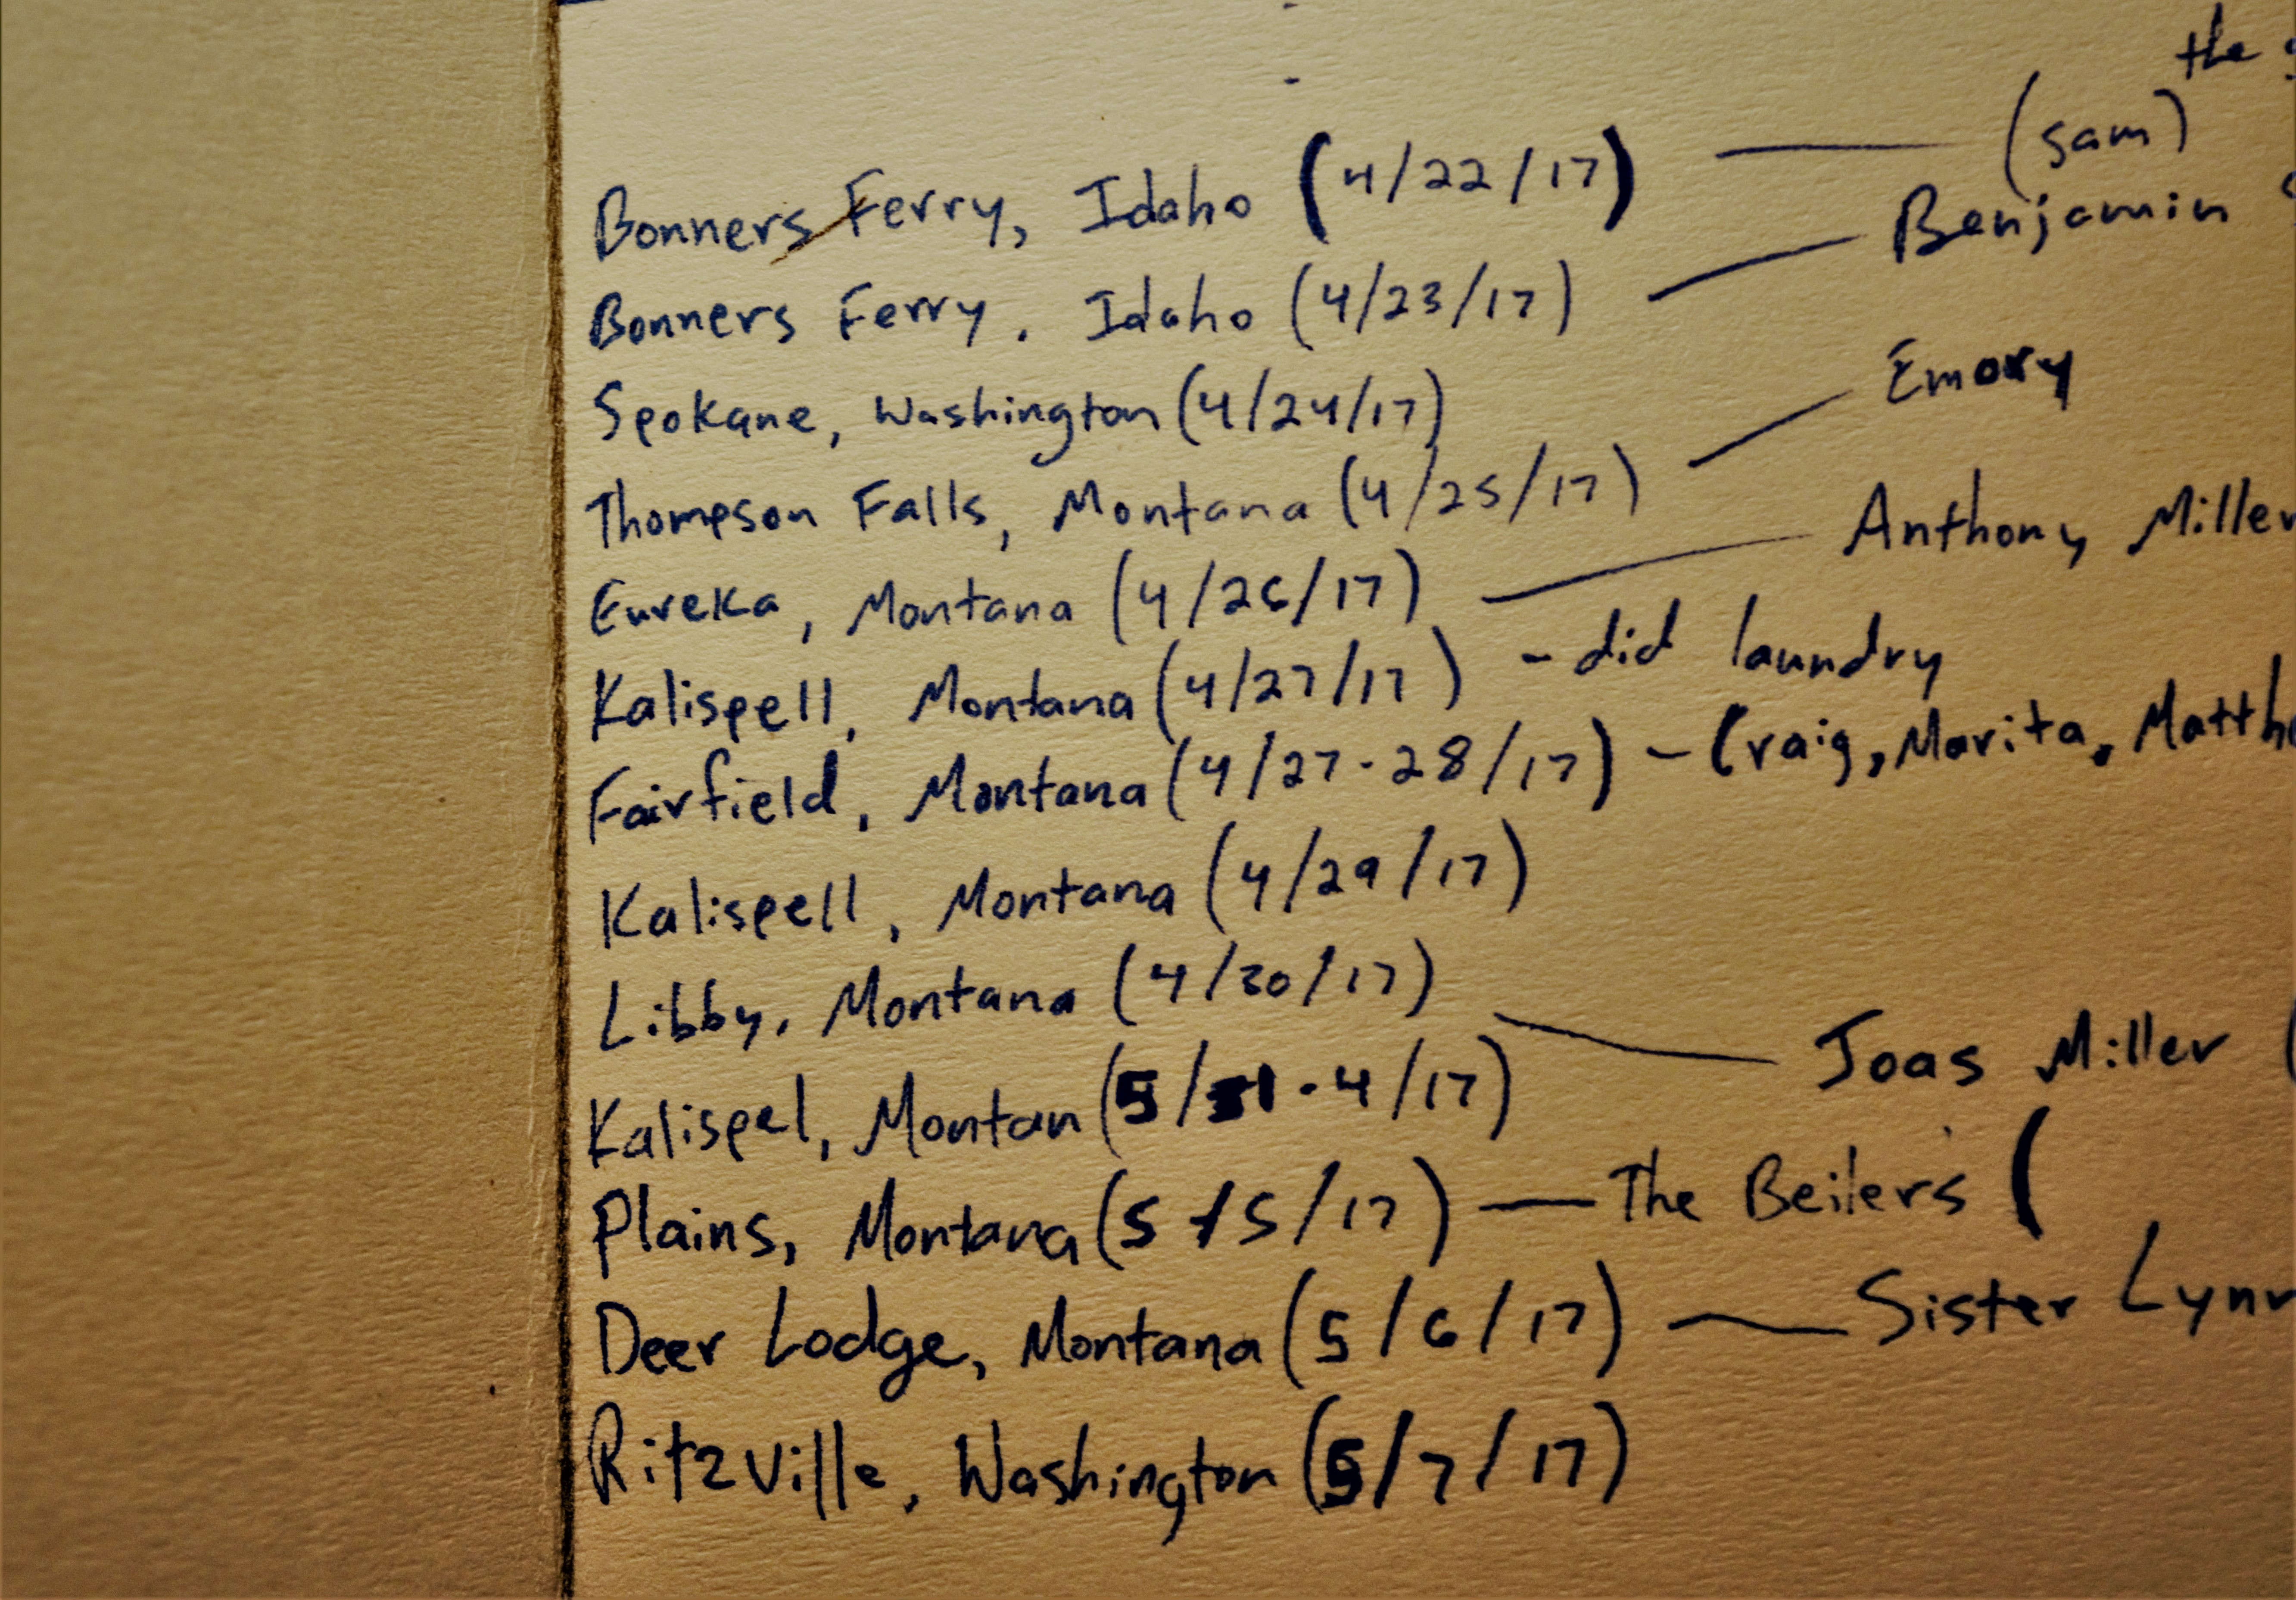 the
Bonners Ferry, Idaho (4/22/17) — (sam)
Bonners Ferry, Idaho (4/23/17) — Benjamin
Spokane, Washington (4/24/17)
Thompson Falls, Montana (4/25/17) — Emory
Eureka, Montana (4/26/17) — Anthony Miller
Kalispell, Montana (4/27/17) - did laundry
Fairfield, Montana (4/27-28/17) - Craig, Marita, Matth
Kalispell, Montana (4/29/17)
Libby, Montana (4/30/17) — Joas Miller (
Kalispel, Montan (5/1-4/17)
Plains, Montana (5/5/17) — The Beilers (
Deer Lodge, Montana (5/6/17) — Sister Lynn
Ritzville, Washington (5/7/17)